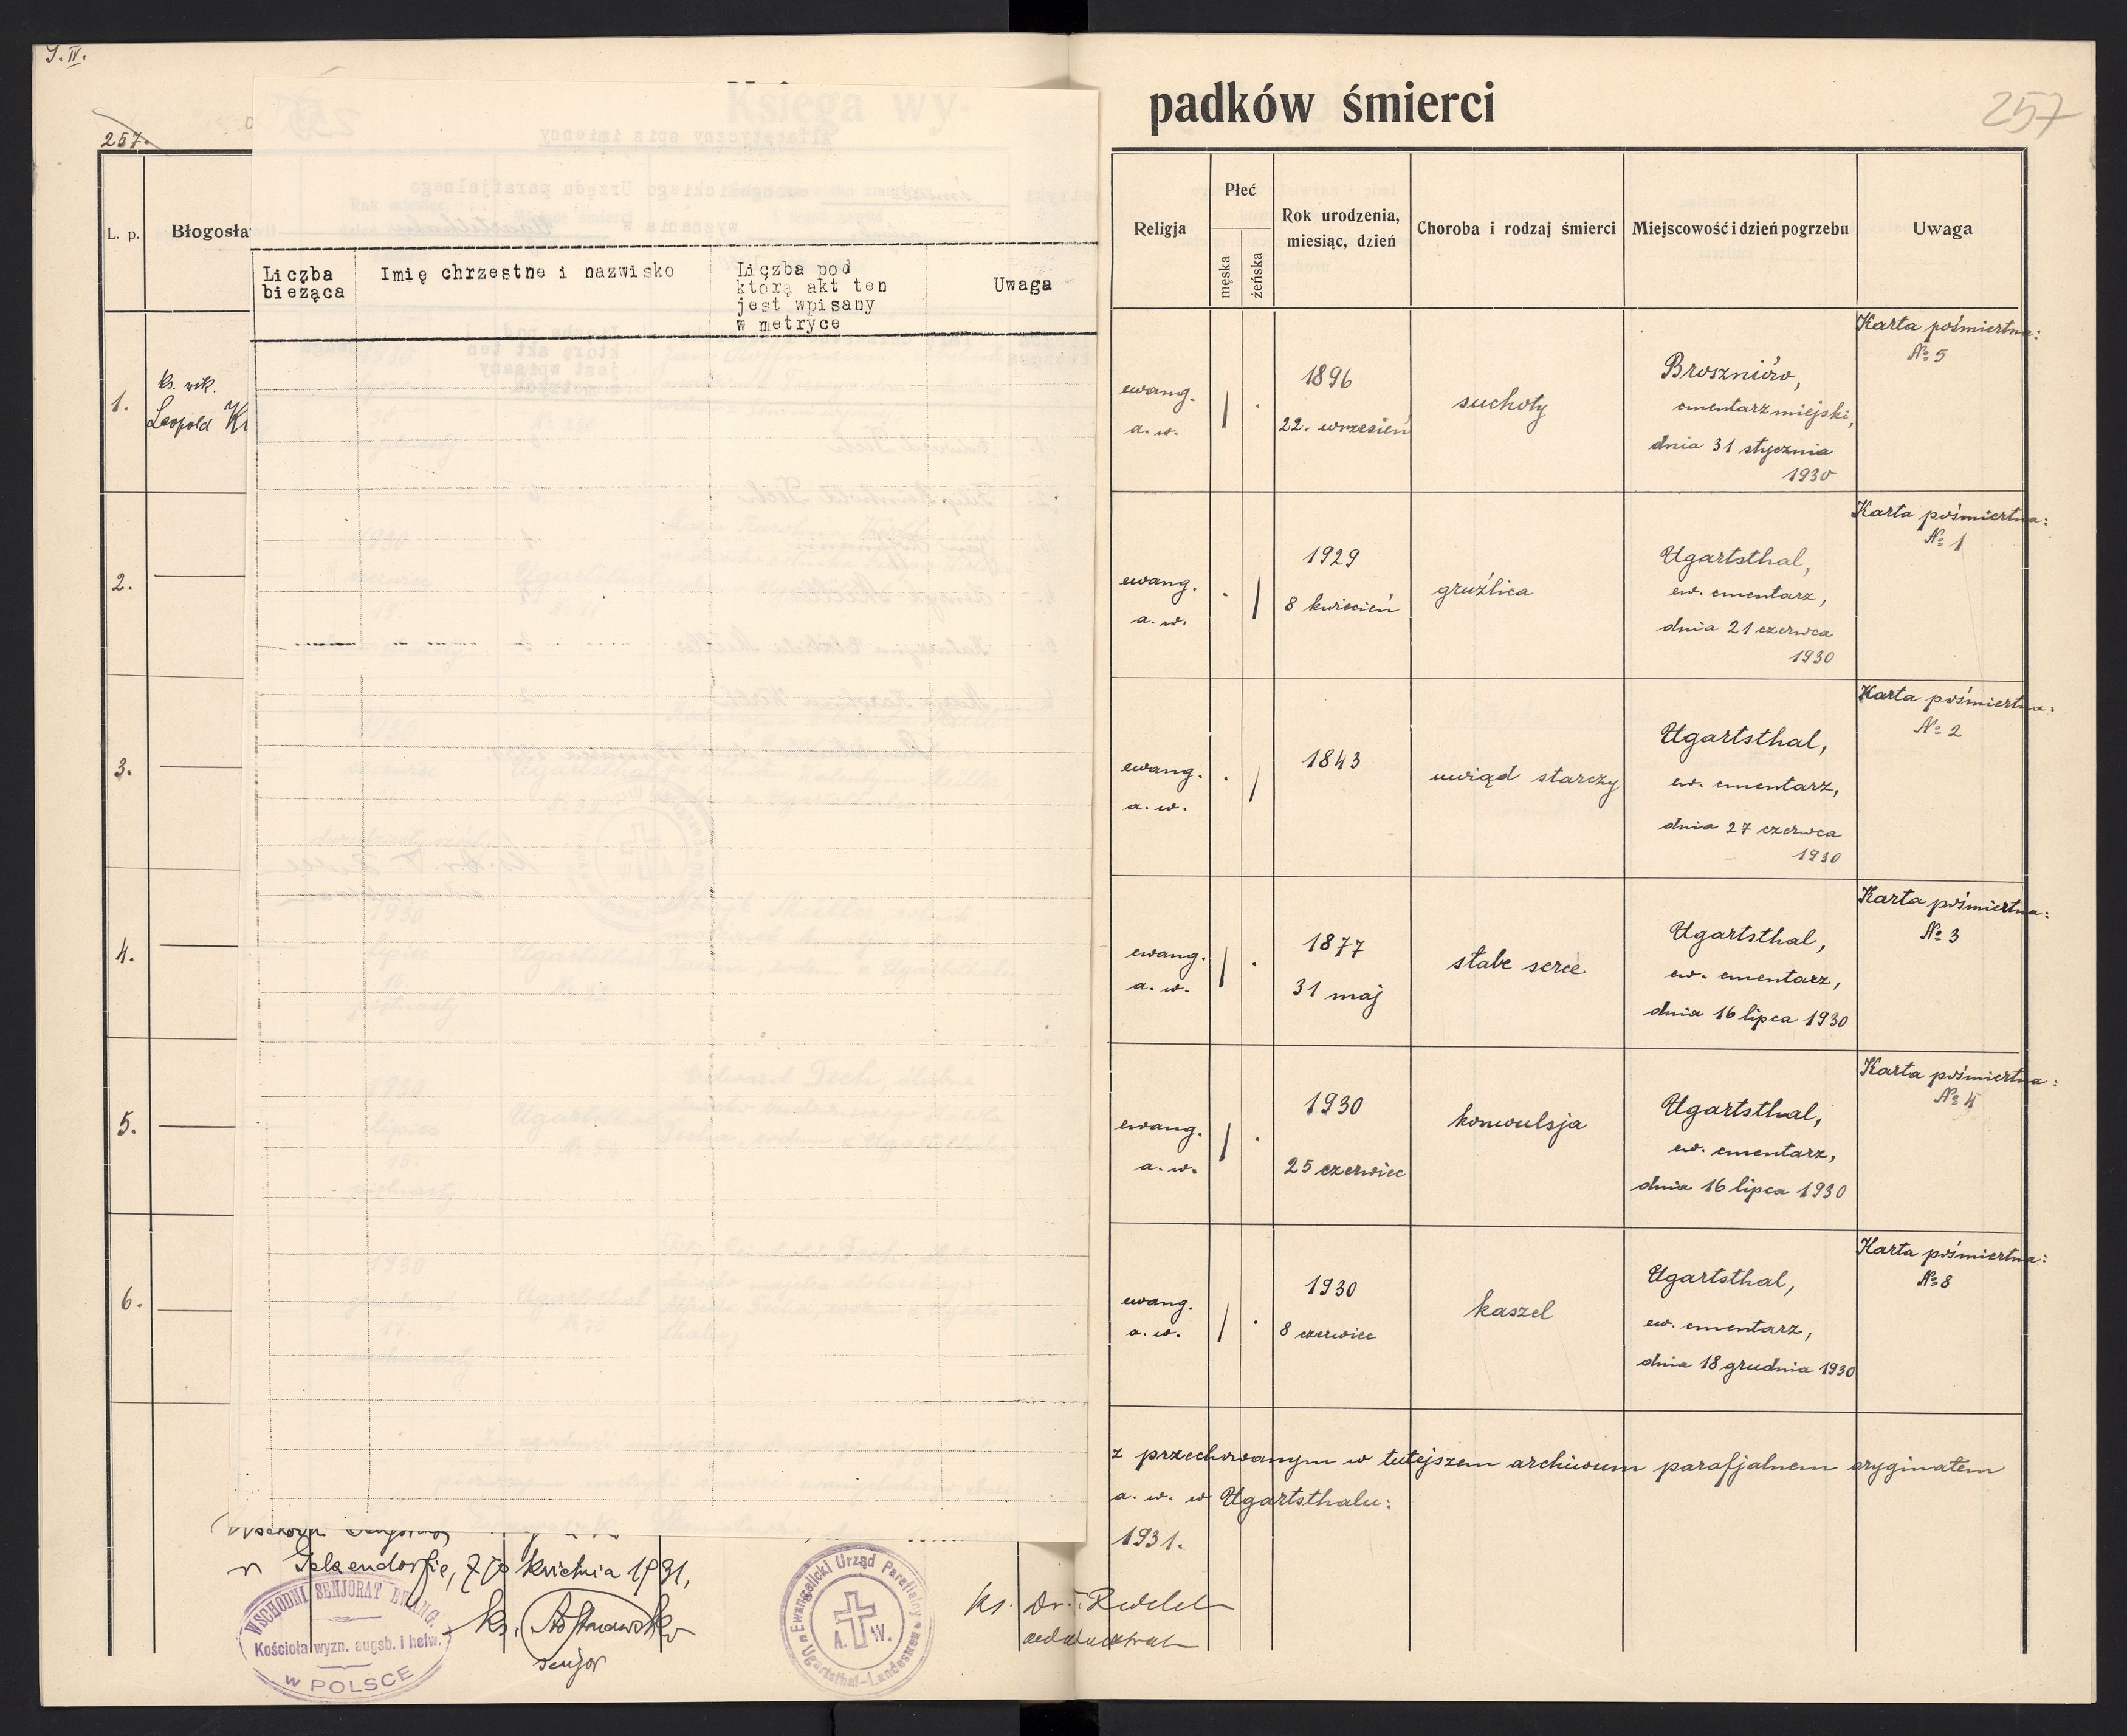 S. IV.
257.
padków śmierci
257
L. p.
Błogosła
Liczba
bieżąca
Imię chrzestne i nazwisko
Liczba pod
którą akt ten
jest wpisany
w metryce
Uwaga
Religja
Płeć
męska
żeńska
Rok urodzenia,
miesiąc, dzień
Choroba i rodzaj śmierci
Miejscowość i dzień pogrzebu
Uwaga
1.
ks. wik.
Leopold Kr
ewang.
a. w.
1896
22. wrzesień
suchoty
Broszniów,
cmentarz miejski,
dnia 31 stycznia
1930
Karta pośmiertna:
№ 5
2.
ewang.
a. w.
1929
8 kwiecień
gruźlica
Ugartsthal,
ew. cmentarz,
dnia 21 czerwca
1930
Karta pośmiertna:
№ 1
3.
ewang.
a. w.
1843
uwiąd starczy
Ugartsthal,
ew. cmentarz,
dnia 27 czerwca
1930
Karta pośmiertna:
№ 2
4.
ewang.
a. w.
1877
31 maj
słabe serce
Ugartsthal,
ew. cmentarz,
dnia 16 lipca 1930
Karta pośmiertna:
№ 3
5.
ewang.
a. w.
1930
25 czerwiec
konwulsja
Ugartsthal,
ew. cmentarz,
dnia 16 lipca 1930
Karta pośmiertna:
№ 4
6.
ewang.
a. w.
1930
8 czerwiec
kaszel
Ugartsthal,
ew. cmentarz,
dnia 18 grudnia 1930
Karta pośmiertna:
№ 8
z przechowanym w tutejszem archiwum parafjalnem oryginałem
a. w. w Ugartsthalu:
1931.
kwietnia 1931.
WSCHODNI SENJORAT EWANG.
Kościoła wyzn. augsb. i helw.
w POLSCE
ks.
senjor
Ewangelicki Urząd Parafialny
A. W.
Ugartsthal-Landestreu
ks. Dr.